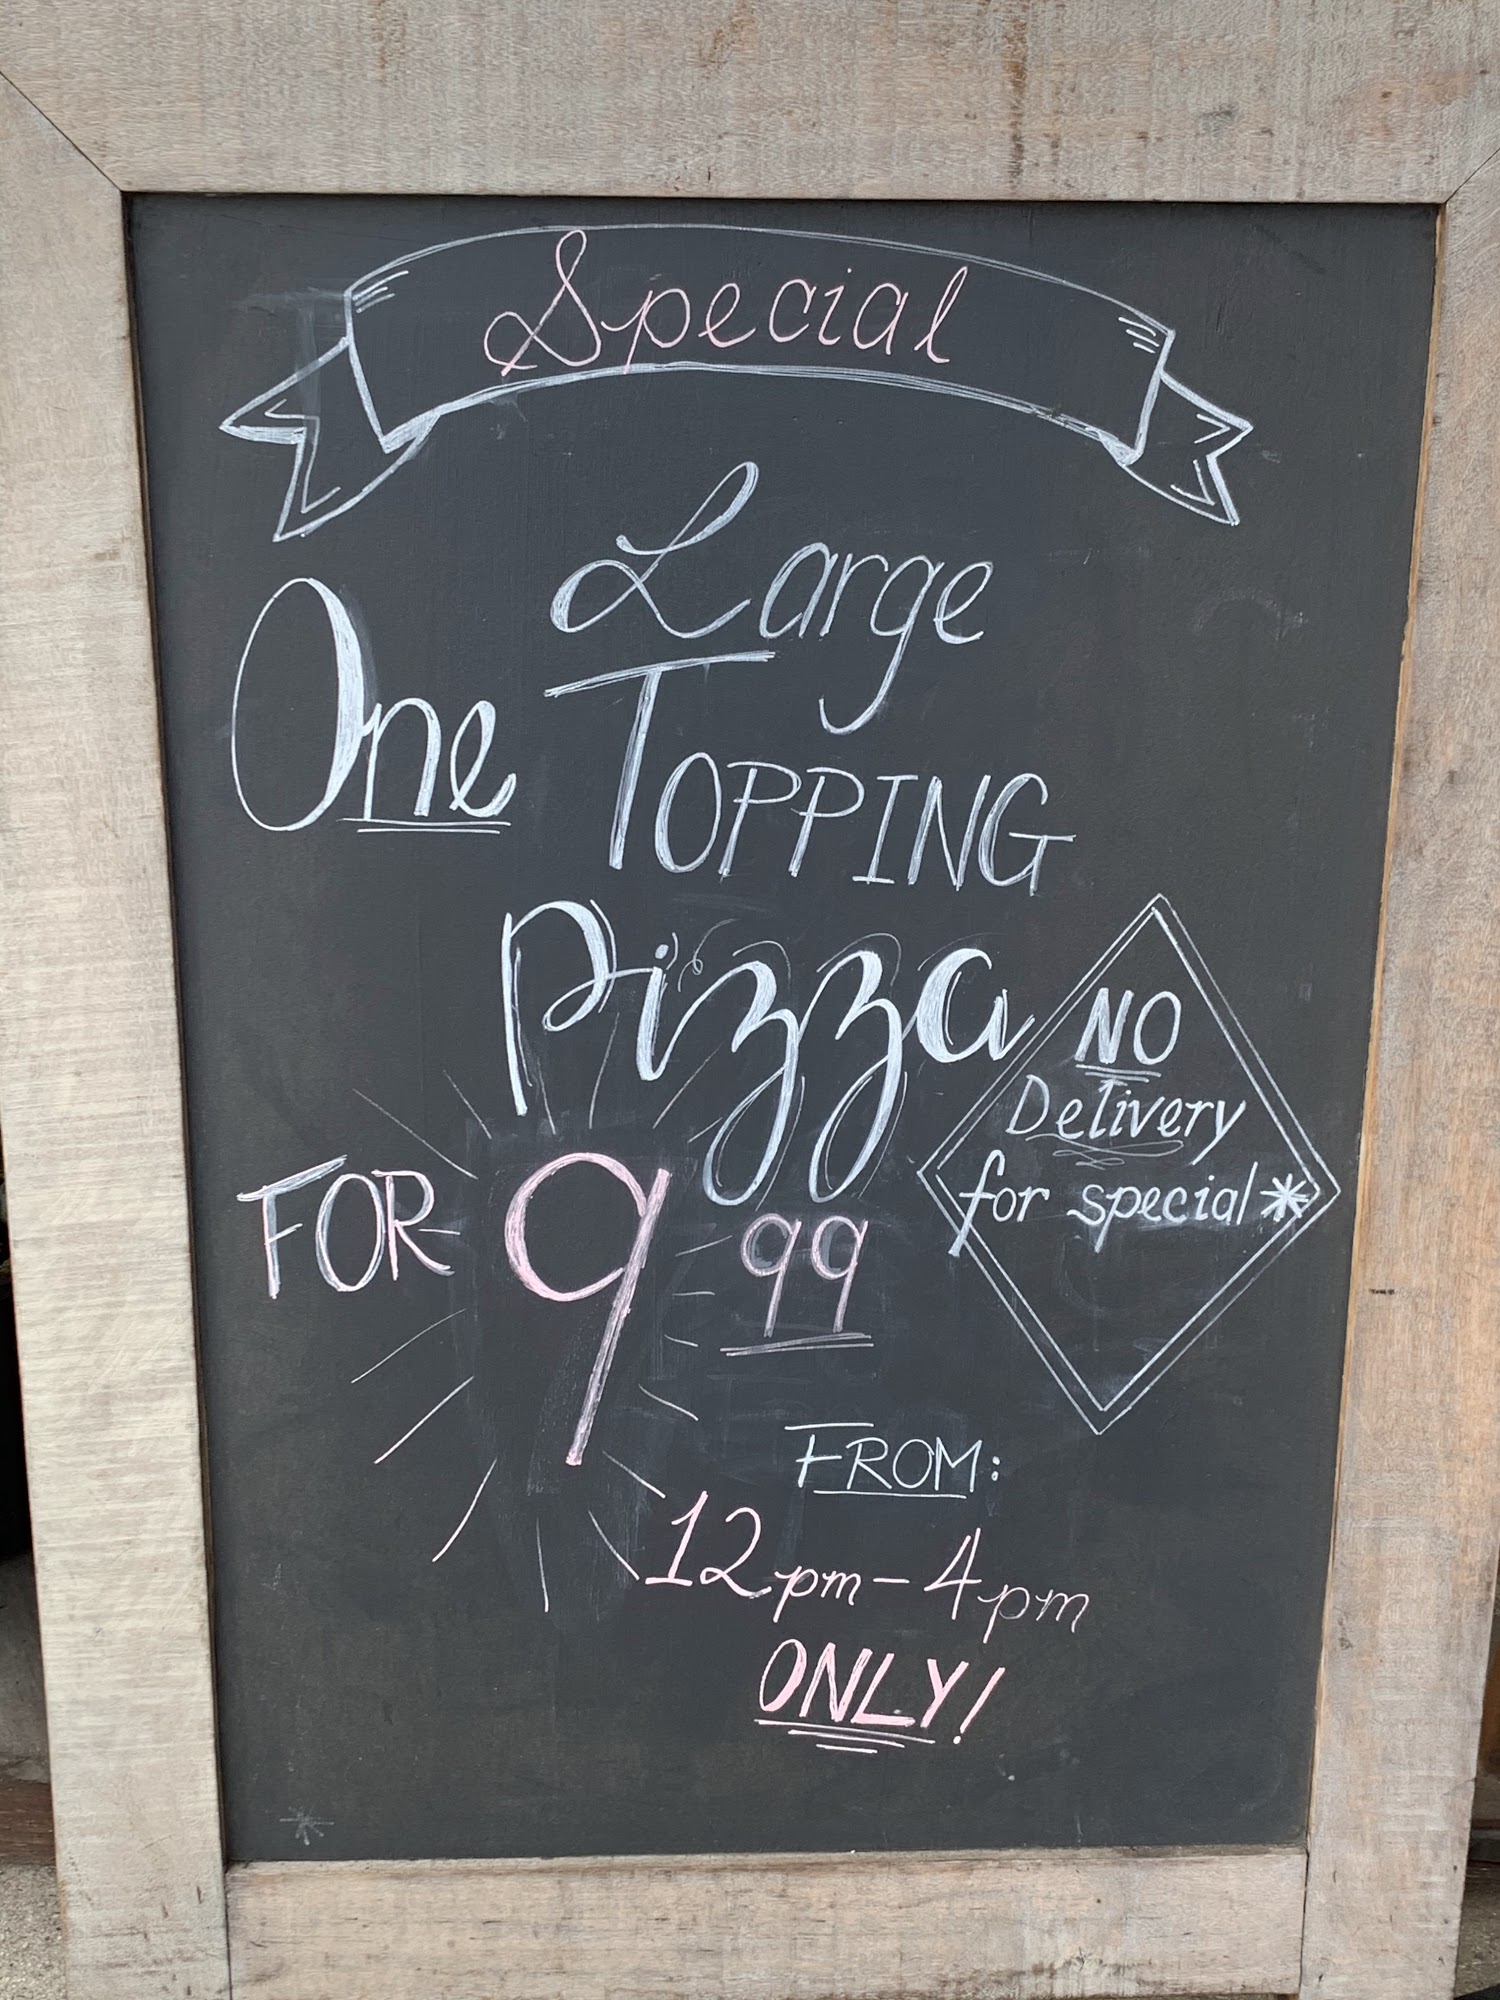 Special
Large
One TOPPING
Pizza
NO
Delivery
for special*
FOR 9 99
FROM:
12pm-4pm
ONLY!
*